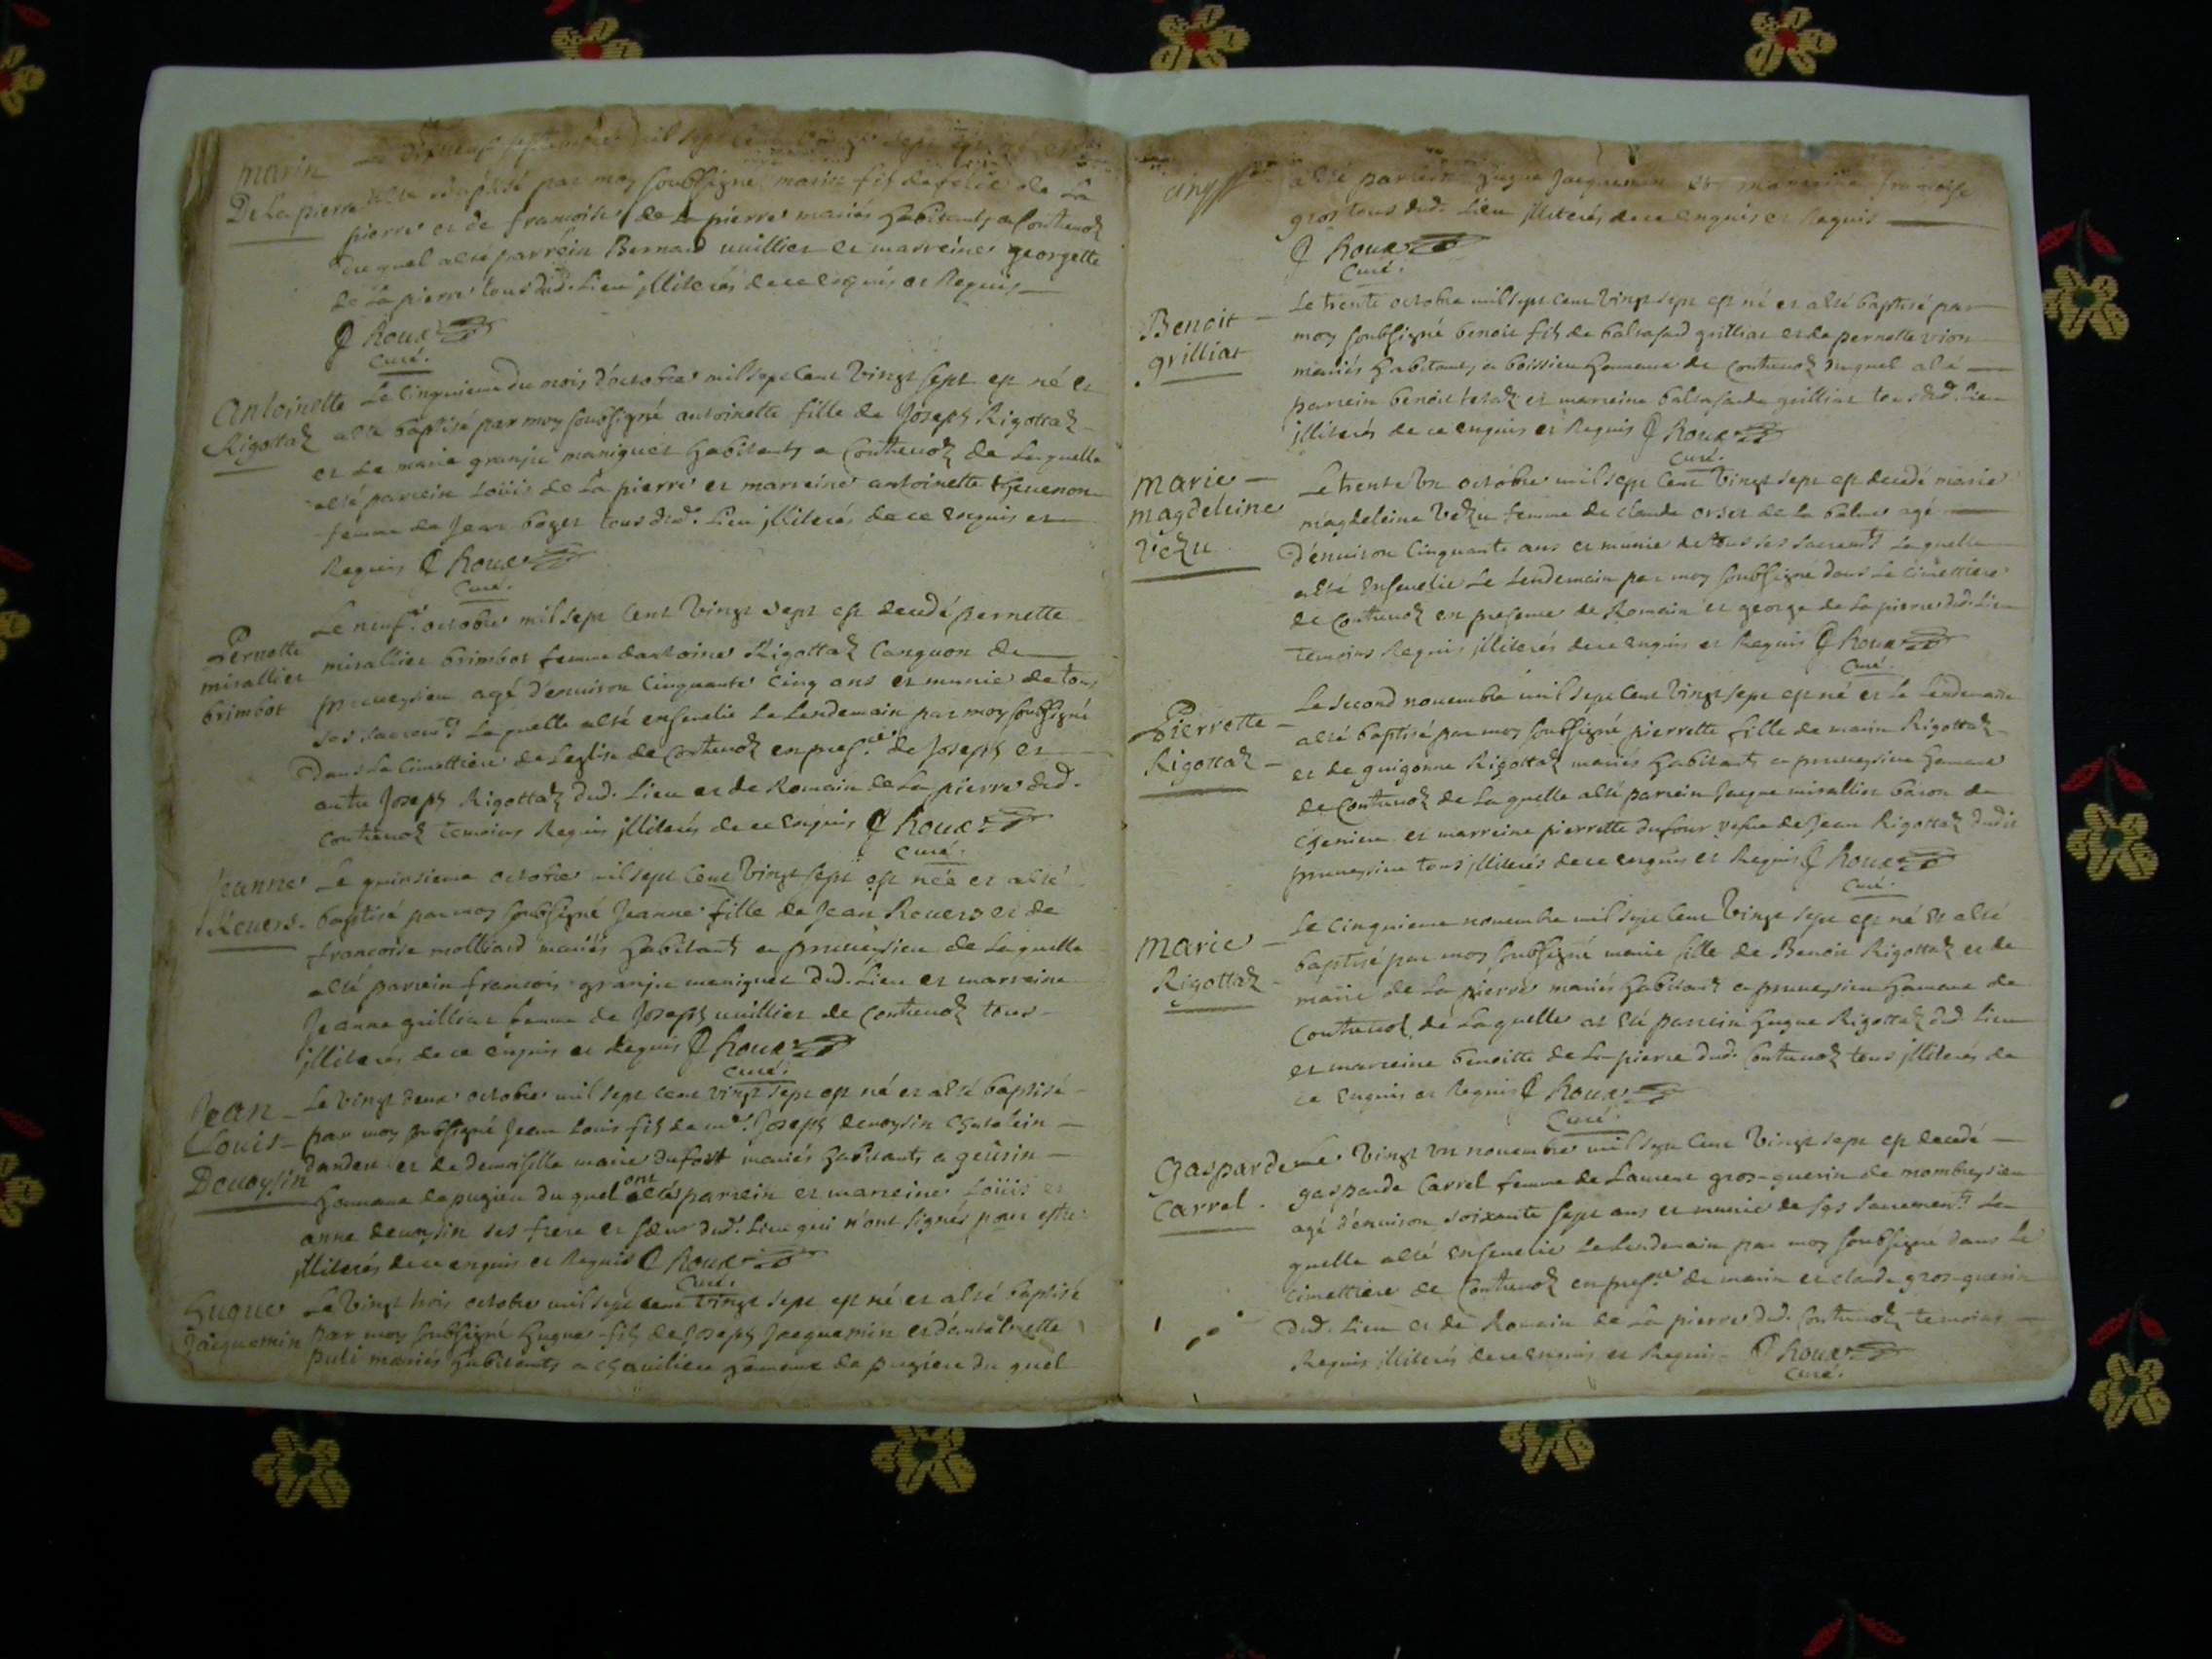 marin
De la pierre
Le dixneuf septembre mil sept cent
esté baptisé par moy soubsigné marin fils de de La
pierre et de francoise de La pierre mariés habitants a Contrevoz
du quel a esté parrein Bernard vuillier et marreine georgette
de La pierre tous dud. Lieu jlliterés de ce enquis et Requis
J Roux
curé.
Antoinette
Rigottaz
Le cinquieme du mois d'octobre mil sept cent vingt sept est né et
a esté baptisé par moy soubsigné antoinette fille de Joseph Rigottaz
et de marie granju maniguet habitants a Contrevoz de La quelle
a esté parrein Loüis de La pierre et marreine antoinette thevenon
femme de Jean boget tous dud. Lieu jlliterés de ce enquis et
Requis J Roux
Curé.
Pernette
misallier
brimbot
Le neuf.e octobre mil sept cent vingt sept est decedé pernette
misallier brimbot femme dantoine Rigottaz Canguon de
preveysieu agé d'environ cinquante cinq ans et munie de tous
ses sacrem.ts La quelle a esté ensevelie Le Lendemain par moy soubsigné
dans Le cimettiere de Leglise de Contrevoz en pres.ce de Joseph et
autre Joseph Rigottaz dud. Lieu et de Romain de La pierre dud.
Contrevoz temoins Requis jlliterés de ce enquis J Roux
Curé.
Jeanne
Revers.
Le quinsieme octobre mil sept cent vingt sept est née et a esté
baptisé par moy soubsigné Jeanne fille de Jean Revers et de
francoise molliard mariés habitants a preveysieu de La quelle
a esté parrein francois granju maniguet dud. Lieu et marreine
Jeanne grilliat femme de Joseph vuillier de Contrevoz tous
jlliterés de ce enquis et Requis J Roux
curé.
Jean
Louis
Devoysin
Le vingt deux octobre mil sept cent vingt sept est né et a esté baptisé
par moy soubsigné Jean Louis fils de m.e Joseph devoysin Chatelein
dandert et de demoiselle marie dufort mariés habitants a geürin
hameau de pugieu du quel ont estés parrein et marreine Loüis et
anne devoysin ses frere et sœur dud. Lieu qui n'ont signés pour estre
jlliterés de ce enquis et Requis J Roux
Curé.
Hugue
Jaquemin
Le vingt trois octobre mil sept cent vingt sept est né et a esté baptisé
par moy soubsigné hugue fils de Joseph Jaquemin et
puli mariés habitants a Chavilieu hameau de pugieu du quel
a esté parrein hugue Jaquemin et marreine francoise
gros tous dud. Lieu jlliterés de ce enquis et Requis
J Roux
Curé.
Benoit
grilliat
Le trente octobre mil sept cent vingt sept est né et a esté baptisé par
moy soubsigné benoit fils de baltasard grilliat et de pernette vion
mariés habitants a boissieu hameau de Contrevoz du quel a esté
parrein benoit tetaz et marreine baltasarde grilliat tous dud. Lieu
jlliterés de ce enquis et Requis J Roux
Curé.
marie
magdeleine
vezu
Le trente un octobre mil sept cent vingt sept est decedé marie
magdeleine vezu femme de claude orset de La balme agé
d'environ cinquante ans et munie de tous ses sacrem.ts La quelle
a esté ensevelie Le Lendemain par moy soubsigné dans Le cimettiere
de Contrevoz en presence de Romain et george de La pierre dud. Lieu
temoins Requis jlliterés de ce enquis et Requis J Roux
Curé.
Pierrette
Rigottaz
Le second novembre mil sept cent vingt sept est né et Le Lendemain
a esté baptisé par moy soubsigné pierrette fille de marin Rigottaz
et de guigonne Rigottaz mariés habitants a preveysieu hameau
de Contrevoz de La quelle a esté parrein Jaque misallier baron de
chemieu et marreine pierrette dufour vefve de Jean Rigottaz dudit
preveysieu tous jlliterés de ce enquis et Requis J Roux
Curé.
Marie
Rigottaz
Le cinquieme novembre mil sept cent vingt sept est né et a esté
baptisé par moy soubsigné marie fille de Benoit Rigottaz et de
marie de La pierre mariés habitants a preveysieu hameau de
Contrevoz de La quelle at esté parrein hugue Rigottaz dud. Lieu
et marreine benoitte de La pierre dud. Contrevoz tous jlliterés de
ce enquis et Requis J Roux
Curé.
Gasparde
Carrel.
Le vingt un novembre mil sept cent vingt sept est decedé
gasparde Carrel femme de Laurent gros-guerin de mombreysieu
agé d'environ soixante sept ans et munie de ses sacremen.ts La
quelle a esté ensevelie Le Lendemain par moy soubsigné dans Le
cimettiere de Contrevoz en pres.ce de marin et claude gros-guerin
dud. Lieu et de Romain de La pierre dud. Contrevoz temoins
Requis jlliterés de ce enquis et Requis J Roux
Curé.